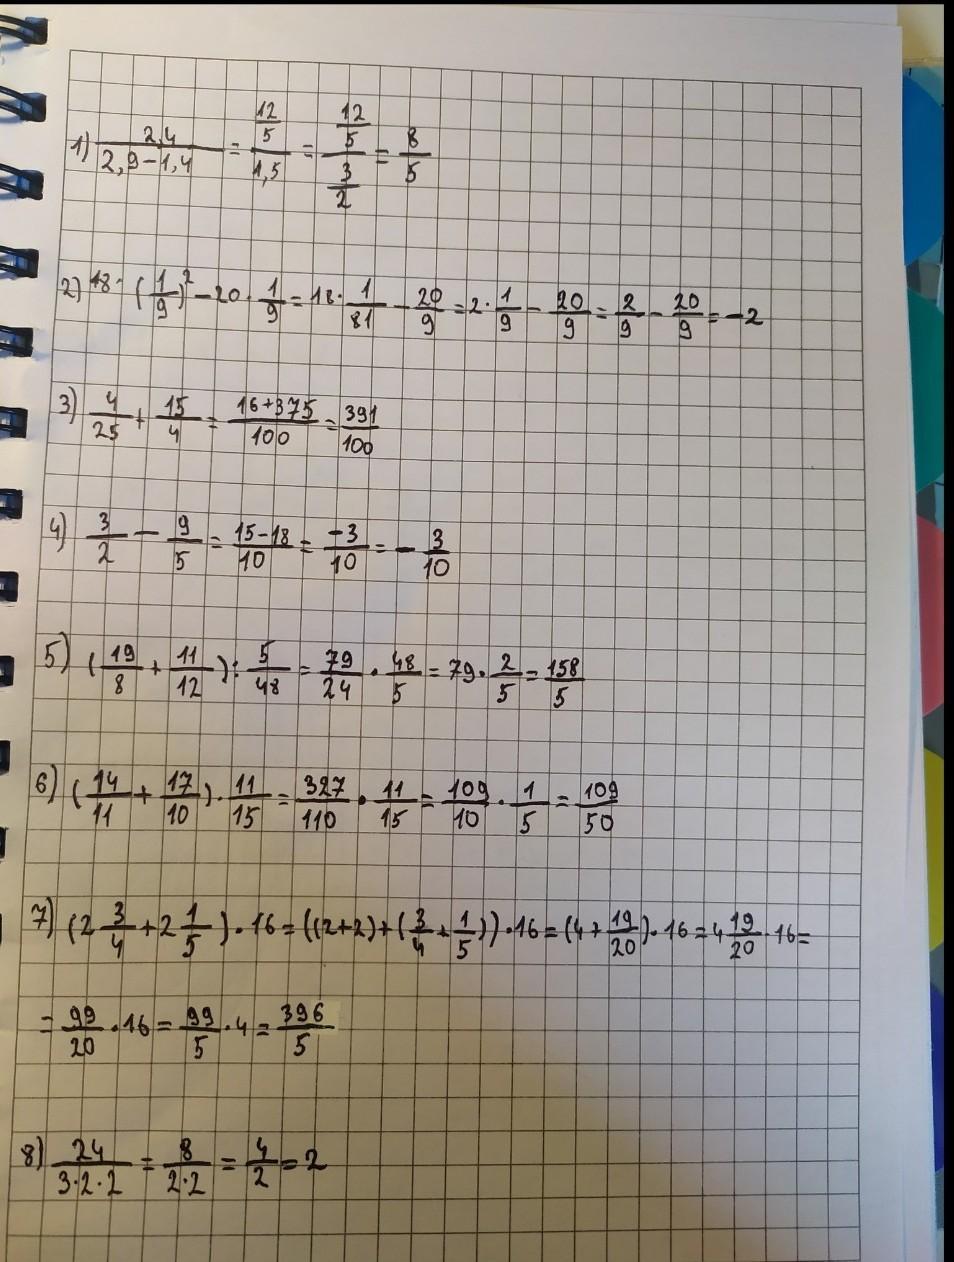 1) 2,4/(2,9-1,4) = (12/5)/1,5 = (12/5)/(3/2) = 8/5
2) 18·(1/9)² - 20·1/9 = 18·1/81 - 20/9 = 2·1/9 - 20/9 = 2/9 - 20/9 = -2
3) 4/25 + 15/4 = (16+375)/100 = 391/100
4) 3/2 - 9/5 = (15-18)/10 = -3/10 = - 3/10
5) (19/8 + 11/12) : 5/48 = 79/24 · 48/5 = 79·2/5 = 158/5
6) (14/11 + 17/10) · 11/15 = 327/110 · 11/15 = 109/10 · 1/5 = 109/50
7) (2 3/4 + 2 1/5) · 16 = ((2+2)+(3/4+1/5))·16 = (4+19/20)·16 = 4 19/20·16 =
= 99/20 · 16 = 99/5 · 4 = 396/5
8) 24/(3·2·2) = 8/(2·2) = 4/2 = 2